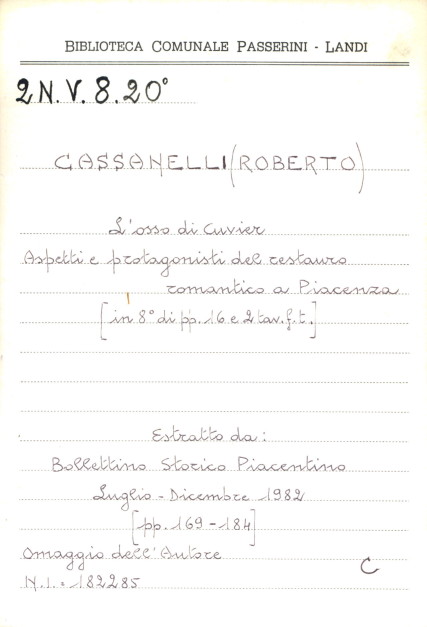 BIBLIOTECA COMUNALE PASSERINI - LANDI
2N.V.8.20°
CASSANELLI (ROBERTO)
L'osso di Cuvier
Aspetti e protagonisti del restauro
romantico a Piacenza
[in 8° di pp. 16 e 2 tav. f. t.]
Estratto da:
Bollettino Storico Piacentino
Luglio - Dicembre 1982
[pp. 169 - 184]
Omaggio dell'Autore
C
N.I. = 182285